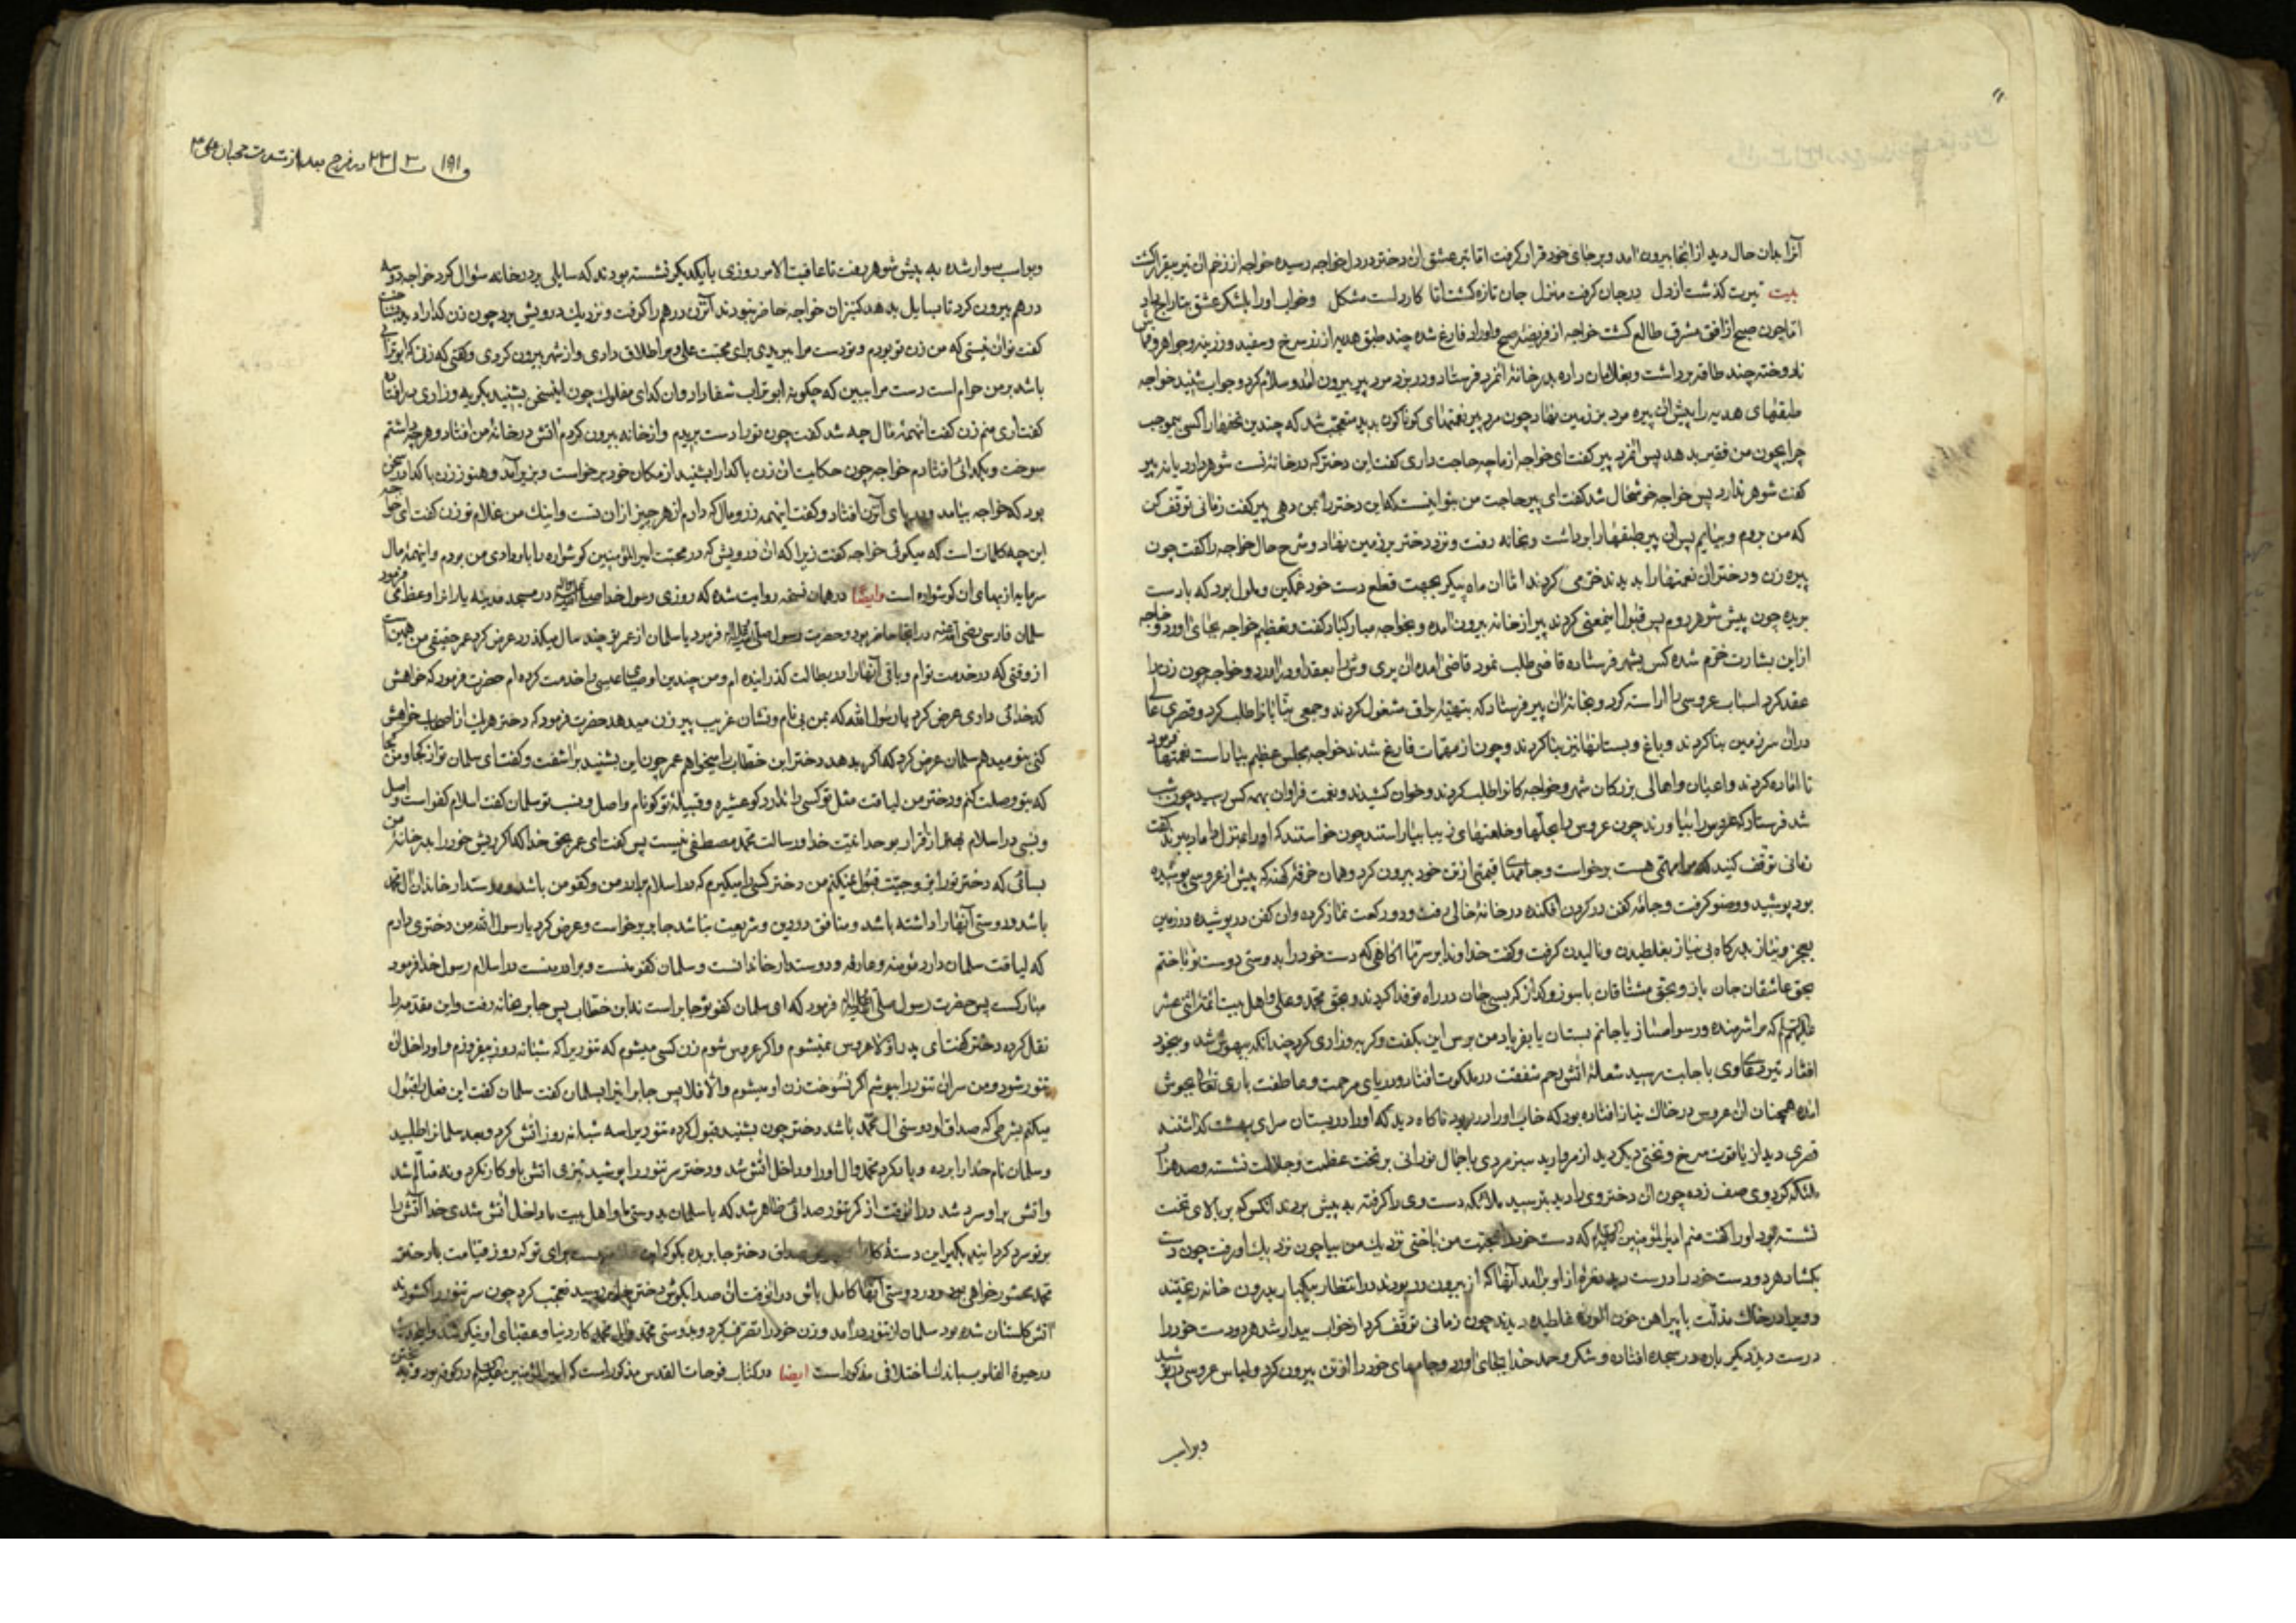 آنرا بدان حال دید از آنجا بیرون آمد و بر جای خود قرار گرفت اما تیر عشق آن دختر در دل خواجه رسیده خواجه از زخم آن تیر بیقرار گشت
بیت تیرت گذشت از دل در جان گرفت منزل جان تازه گشت اما کار است مشکل و خواب او را لشکر عشق بتاراج
اما چون صبح از افق مشرق طالع گشت خواجه از فریضهٔ صبح و اوراد فارغ شده چند طبق هدیه از زر سرخ و سفید و زرینه و جواهر و قماش
نادوخته چند طاقه برداشت و بغلامان داده بدر خانهٔ آنمرد فرستاد و در بزد مرد پیر بیرون آمد و سلام کرد و جواب شنید خواجه
طبقهای هدیه را پیش آن پیره مرد بر زمین نهاد چون مرد پیر نعمتهای گوناگون بدید متعجب شد که چندین تحفها را کسی بموجب
چرا بچون من فقیر بدهد پس آنمرد پیر گفت ای خواجه از ما چه حاجت داری گفت این دختر که در خانهٔ تست شوهر دارد یا نه پیر
گفت شوهر ندارد پس خواجه خوشحال شد گفت ای پیر حاجت من بتو اینست که این دختر را بمن دهی پیر گفت زمانی توقف کن
که من بروم و بیایم پس آن پیر طبقها را برداشت و بخانه رفت و نزد دختر بر زمین نهاد و شرح حال خواجه را گفت چون
پیره زن و دختر آن نعمتها را بدیدند خرمی کردند اما آن ماه پیکر بجهت قطع دست خود غمگین و ملول بود که با دست
بریده چون پیش شوهر روم پس قبول اینمعنی کردند پیر از خانه بیرون آمده و بخواجه مبارکباد گفت و تعظیم خواجه بجای آورد و خواجه
از این بشارت خرم شده کس بشهر فرستاده قاضی طلب نمود قاضی آمده آن پری وش را بعقد او درآورد و خواجه چون زن را
عقد کرد اسباب عروسی را آراسته کرد و بخانهٔ آن پیر فرستاد که بتهیهٔ زفاف مشغول کردند و جمعی بنایان را طلب کرد و قصری عالی
در آن سرزمین بنا کردند و باغ و بستانها نیز بنا کردند و چون از مهمات فارغ شدند خواجه مجلس عظیم بیاراست فرمود نعمتها
تا آماده کردند و اعیان و اهالی بزرگان شهر و خواجه کانرا طلب کردند و خوان کشیدند و نعمت فراوان بهمه کس رسید چون شب
شد فرستاد که عروس را بیاورند چون عروس را بحلها و خلعتهای زیبا بیاراستند چون خواستند که او را بمنزل داماد برند گفت
زمانی توقف کنید که مرا مهمی هست برخواست و جامهای قیمتی از تن خود بیرون کرد و همان خرقهٔ کهنه که پیش از عروسی پوشیده
بود پوشید و وضو گرفت و جامهٔ کفن در گردن افکنده در خانهٔ خالی رفت و دو رکعت نماز کرد و آن کفن در پوشیده در زمین
بعجز و نیاز بدرگاه بی نیاز بغلطیدن و نالیدن گرفت و گفت خداوندا بر سر نهان آگاهی که دست خود را بدوستی دوست تو باختم
بحق عاشقان جان باز و بحق مشتاقان با سوز و گداز که بسی جان در راه تو فدا کردند و بحق محمد و علی و اهل بیت ائمه اثنی عشر
علیهم السلام که مرا شرمنده و رسوا مساز یا جانم بستان یا بفریاد من برس این بگفت و گریه و زاری کرد چندانکه بیهوش شد و بیخود
افتاد تیر دعای وی باجابت رسید شعلهٔ آتش رحم شفقت در ملکوت افتاد و دریای مرحمت و عاطفت باری تعالی بجوش
آمده همچنان آن عروس در خاک نیاز افتاده بود که خواب او را در ربود ناگاه دید که او را در بستان سرای بهشت گذاشتند
قصری دید از یاقوت سرخ و تختی دیگر دید از مروارید سبز مردی با جمال نورانی بر تخت عظمت و جلالت نشسته و صد هزار
ملئکه گرد وی صف زده چون آن دختر وی را دید بترسید ملائکه دست وی را گرفته به پیش بردند آنکس که بر بالای تخت
نشسته بود او را گفت منم امیرالمؤمنین علیه السلام که دست خود را بمحبت من باختی نزدیک من بیا چون نزدیک او رفت چون دست
بگشاد هر دو دست خود را درست دید نعره از او برآمد آنها که از بیرون در بودند در انتظار بیکبار بدرون خانه ریختند
و ویرا در خاک مذلت با پیراهن خون آلوده غلطیده دیدند چون زمانی توقف کرد از خواب بیدار شد هر دو دست خود را
درست دید دیگر باره در سجده افتاده و شکر و حمد خدا بجای آورد و جامهای خود را از تن بیرون کرد و لباس عروسی در پوشید
و بر اسب
و بر اسب سوار شده به پیش شوهر رفت تا عاقبت الامر روزی با یکدیگر نشسته بودند که سایلی بر در خانه سئوال کرد خواجه دو سه
درهم بیرون کرد تا بسایل بدهد کنیزان خواجه حاضر نبودند آنزن درهم را گرفت و نزدیک درویش برد چون زن گدا را دید بشناخت
گفت تو آن نیستی که من زن تو بودم و تو دست مرا بریدی برای محبت علی و مرا طلاق دادی و از شهر بیرون کردی و گفتی که زنی که ابوترابی
باشد بر من حرام است دست مرا ببین که چگونه ابوتراب شفا داد و آن گدای مفلوک چون این سخن بشنید بگریه و زاری در افتاد
گفت آری منم زن گفت آنهمهٔ مال چه شد گفت چون تو را دست بریدم و از خانه بیرون کردم آتش در خانهٔ من افتاد و هر چه داشتم
سوخت و بگدائی افتادم خواجه چون حکایت آن زن با گدا را بشنید از مکان خود برخواست و بزیر آمد و هنوز زن با گدا در سخن
بود که خواجه بیامد و در پای آنزن افتاد و گفت اینهمه زر و مال که دارم از هر چیز از آن تست و اینک من غلام تو زن گفت ای خواجه
این چه کلمات است که میگوئی خواجه گفت زیرا که آن درویش که در محبت امیرالمؤمنین گوشواره را باو دادی من بودم و اینهمهٔ مال
سرمایه از بهای آن گوشواره است وایضا در همان نسخه روایت شده که روزی رسول خدا در مسجد مدینه یارانرا وعظ میفرمود
سلمان فارسی رضی الله عنه در آنجا حاضر بود و حضرت رسول صلی الله علیه وآله فرمود یا سلمان از عمر تو چند سال میگذرد عرض کرد عمر حقیقی من همین است
از وقتی که در خدمت توام و باقی آنها را در بطالت گذرانیده ام و من چندین اوصیای عیسی را خدمت کرده ام حضرت فرمود که خواهش
کدخدائی داری عرض کرد یا رسول الله که بمن بی نام و نشان غریب پیر زن میدهد حضرت فرمود که دختر هر یک از اصحاب خواهش
کنی بتو میدهم سلمان عرض کرد که اگر بدهد دختر ابن خطاب را میخواهم عمر چون این بشنید برآشفت و گفت ای سلمان تو از کجا و من کجا
که بتو وصلت کنم و دختر من لیاقت مثل تو کسی را ندارد کو عشیره و قبیلهٔ تو کو نام و اصل و نسب تو سلمان گفت اسلام کفو است و اصل
و نسبی در اسلام بعد از اقرار بوحدانیت خدا و رسالت محمد مصطفی نیست پس گفت ای عمر بحق خدا که اگر پیش خود را بدر خانهٔ من
بسائی که دختر تو را بزوجیت قبول نمیکنم من دختر کسی را میگیرم که در اسلام برادر من و کفو من باشد و دوستدار خاندان آل محمد
باشد و دوستی آنها را داشته باشد و منافق در دین و شریعت نباشد جابر برخواست و عرض کرد یا رسول الله من دختری دارم
که لیاقت سلمان دارد مؤمنه و عارفه و دوستدار خاندانست و سلمان کفو منست و برادر منست در اسلام رسول خدا فرمود
مبارکست پس حضرت رسول صلی الله علیه وآله فرمود که ای سلمان کفو تو جابر است نه ابن خطاب پس جابر بخانه رفت و این مقدمه را
نقل کرده دختر گفت ای پدر اولا عروس نمیشوم و اگر عروس شوم زن کسی میشوم که تنوریرا که شبانه روز میفروزم و او داخل آن
تنور شود و من سر آن تنور را بپوشم اگر نسوخت زن او میشوم والا فلا پس جابر اینرا بسلمان گفت سلمان گفت این فعل را قبول
میکنم بشرطی که صداق او دوستی آل محمد باشد دختر چون بشنید قبول کرده تنوریرا سه شبانه روز آتش کرد و بعد سلمانرا طلبید
و سلمان نام خدا را برده و یاد کرد محمد و آل او را و داخل آتش شد و دختر سر تنور را پوشید تیزی آتش باو کار نکرد و نه متألم شد
و آتش بر او سرد شد در آنوقت از کمر تنور صدائی ظاهر شد که یا سلمان بدوستی ما و اهل بیت ما داخل آتش شدی خدا آتش را
بر تو سرد گردانید بگیر این دستهٔ صداق دختر جابر بده بگو که این برای تو که روز قیامت با دختر
محمد محشور خواهی بود و در دوستی آنها کامل باش در آنوقت آن صدا بگوش دختر جابر رسید تعجب کرد چون سر تنور را گشودند
آتش گلستان شده بود سلمان از تنور درآمد و زن خود را تصرف کرد و بدوستی محمد و آل محمد کار دنیا و عقبای او نیکو شد و اینحدیث
در حیوة القلوب باندک اختلافی مذکور است ایضا در کتاب فوحات القدس مذکور است که امیرالمؤمنین علیه السلام در کوفه بود و به